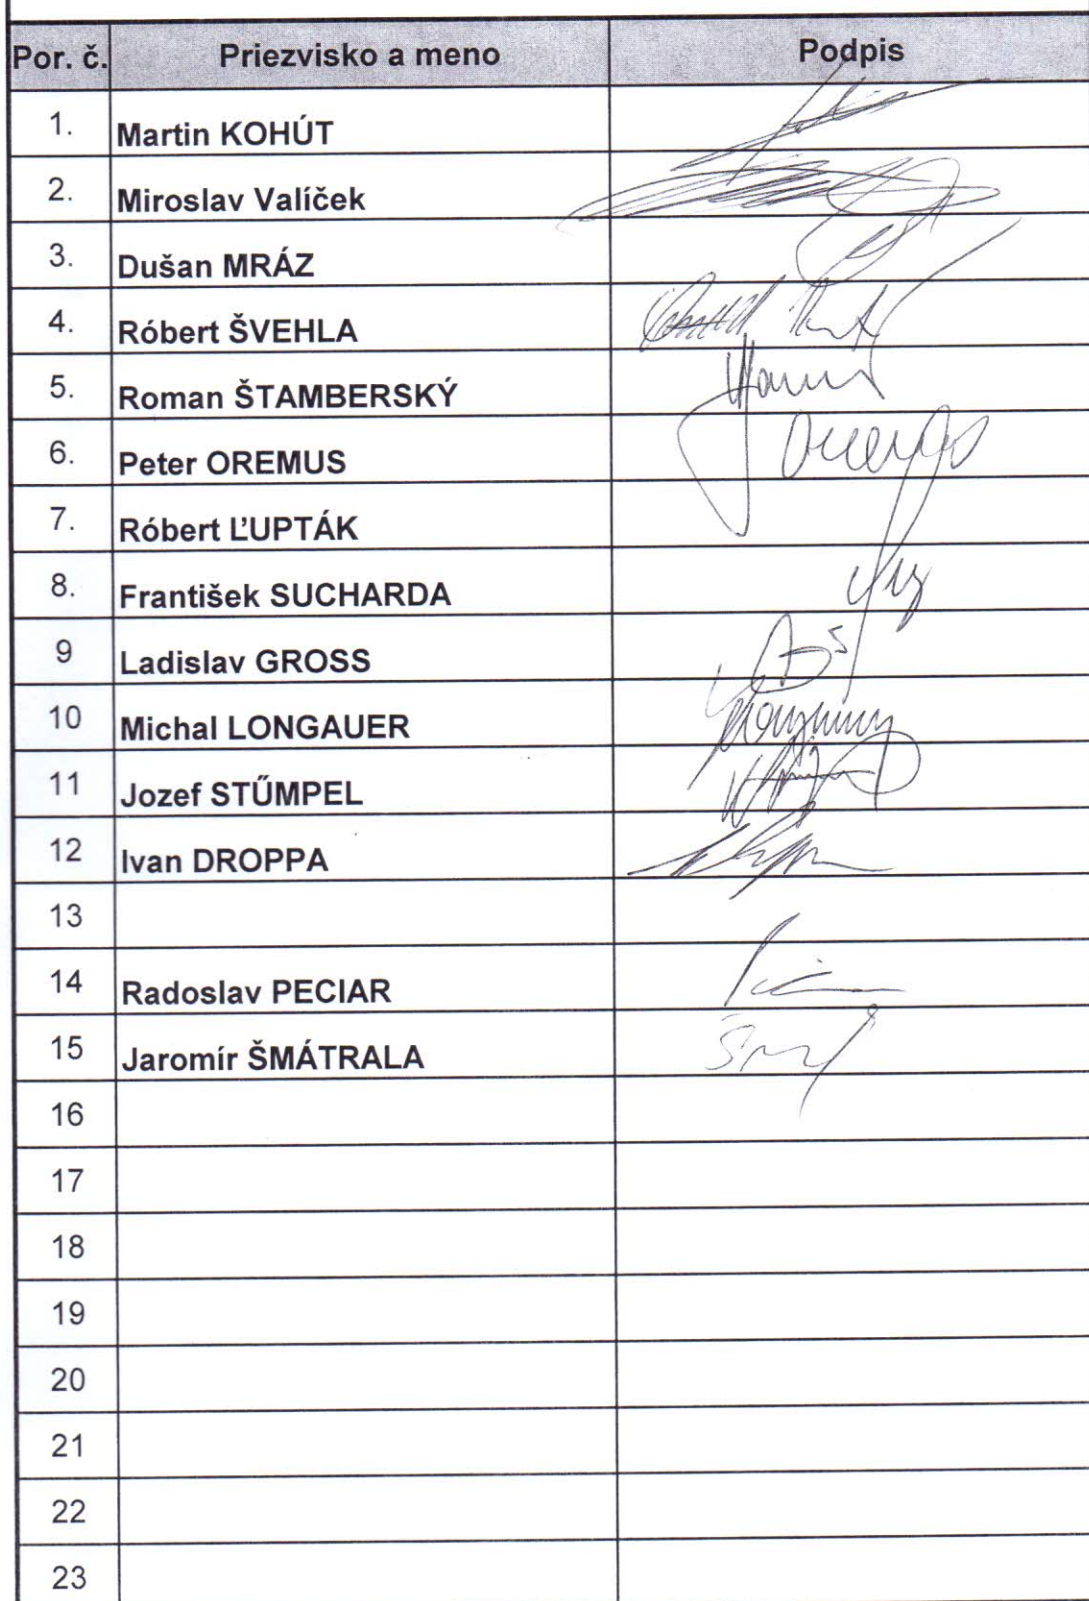 Por. č. Priezvisko a meno Podpis
1. Martin KOHÚT
2. Miroslav Valíček
3. Dušan MRÁZ
4. Róbert ŠVEHLA
5. Roman ŠTAMBERSKÝ
6. Peter OREMUS
7. Róbert ĽUPTÁK
8. František SUCHARDA
9 Ladislav GROSS
10 Michal LONGAUER
11 Jozef STŰMPEL
12 Ivan DROPPA
13
14 Radoslav PECIAR
15 Jaromír ŠMÁTRALA
16
17
18
19
20
21
22
23